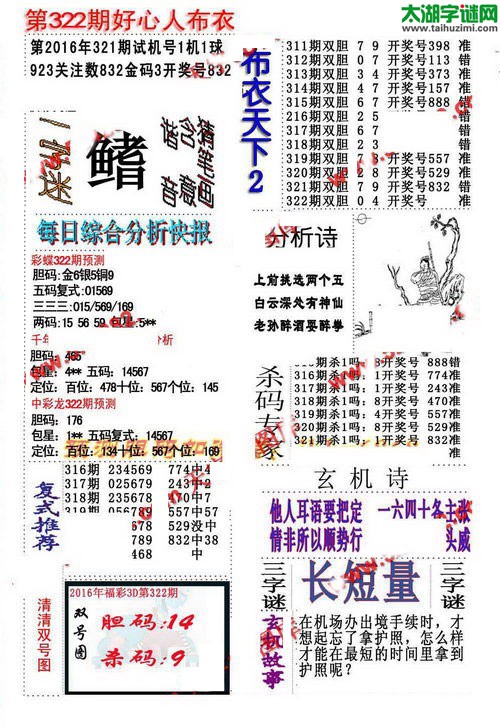 第322期好心人布衣
太湖字谜网
www.taihuzimi.com
第2016年321期试机号1机1球
923关注数832金码3开奖号832
鳍
每日综合分析快报
彩蝶322期预测
胆码:金6银5铜9
五码复式:01569
三三三:015/569/169
两码:15 56 59 包星:5**
胆码:465
包星:4** 五码:14567
定位:百位:478十位:567个位:145
中彩龙322期预测
胆码:176
包星:1** 五码复式:14567
定位:百位:134十位:567个位:169
复式推荐
316期 234569 774中4
317期 235678 243中
318期 045678 470中
319期 056789 557中57
678 529没中
789 832中38
468 中
清清双号图
2016年福彩3D第322期
双号图
胆码:14
杀码:9
布衣天下2
311期双胆 7 9 开奖号398 准
312期双胆 0 7 开奖号113 错
313期双胆 3 4 开奖号373 准
314期双胆 4 7 开奖号157 准
315期双胆 6 7 开奖号888 错
216期双胆 2 5
317期双胆 6 7
318期双胆 2 3 错
319期双胆 开奖号557 准
320期双胆 2 8 开奖号529 准
321期双胆 0 4 开奖号832 错
322期双胆 0 4 开奖号 准
分析诗
上前挑选两个五
白云深处有神仙
老孙醉酒耍醉拳
杀码专家
开奖号 888错
开奖号 774准
开奖号 243准
开奖号 470准
开奖号 557准
开奖号 529准
开奖号 832准
准
玄机诗
他人耳语要把定 一六四十条主张
情非所以顺势行 头威
三字谜
长短量
三字谜
玄机故事
在机场办出境手续时,才
想起忘了拿护照,怎么样
才能在最短的时间里拿到
护照呢?